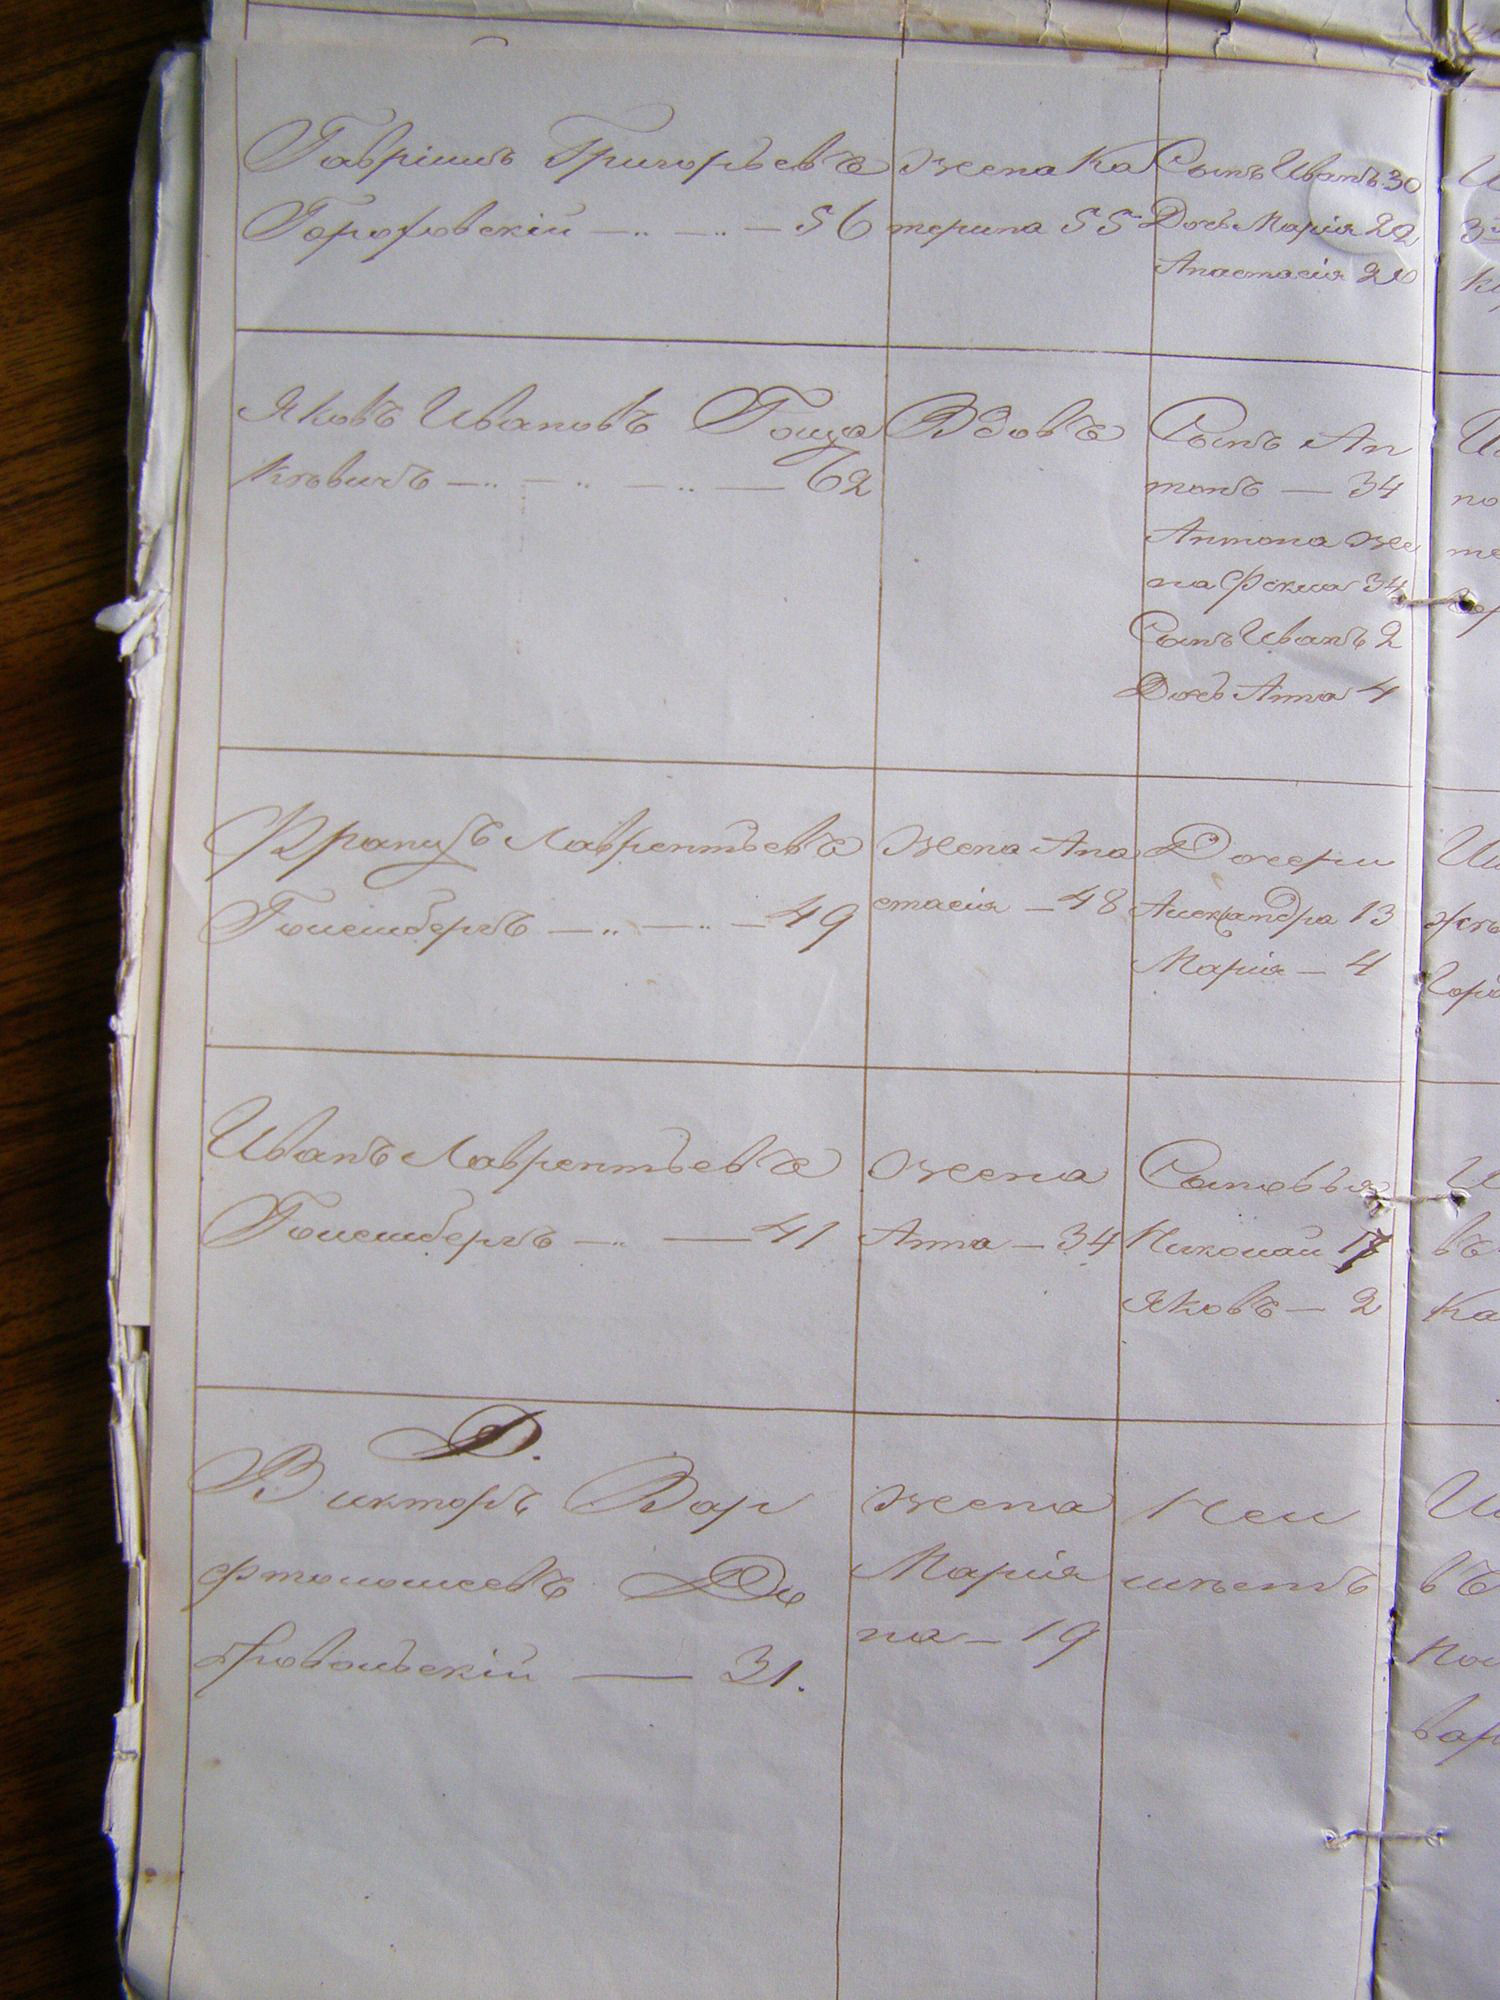 Гавріилъ Григорьевъ
Гороховскій — 56
жена Ка
терина 55
Сынъ Иванъ 30
Дочь Марія 22
Анастасія 20
Яковъ Ивановъ Гоща
кѣвичъ — 62
Вдовъ
Сынъ Ан
тонъ — 34
Антона же
на Фекла 34
Сынъ Иванъ 2
Дочь Анна 4
Францъ Лаврентьевъ
Гольшбергъ — 49
жена Ана
стасія — 48
Дочери
Александра 13
Марія — 4
Иванъ Лаврентьевъ
Гольшбергъ — 41
жена
Анна — 34
Сыновья
Николай 17
Яковъ — 2
Д.
Викторъ Вар
фоломеевъ До
бровольскій — 31.
жена
Марія
на — 19
Неи
мѣетъ